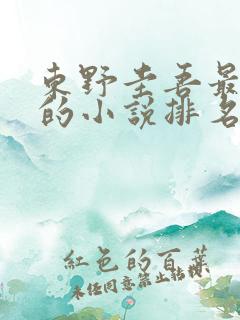 東野圭吾最
的小說排名
紅色的百葉
未經同意禁止轉載